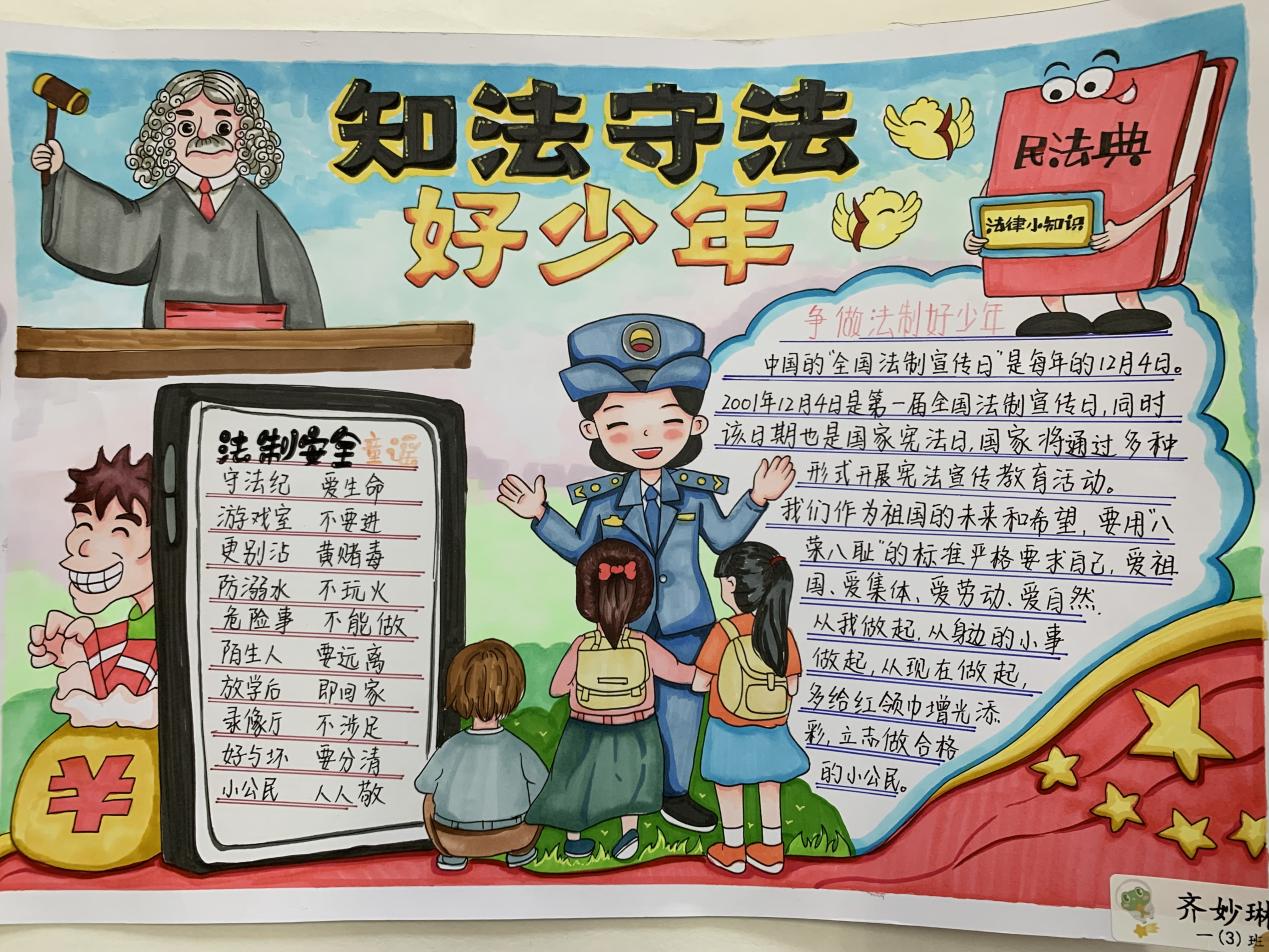 知法守法
好少年
民法典
法律小知识
争做法制好少年
中国的"全国法制宣传日"是每年的12月4日。
2001年12月4日是第一届全国法制宣传日,同时
该日期也是国家宪法日,国家将通过多种
形式开展宪法宣传教育活动。
我们作为祖国的未来和希望,要用"八
荣八耻"的标准严格要求自己,爱祖
国、爱集体、爱劳动、爱自然.
从我做起,从身边的小事
做起,从现在做起,
多给红领巾增光添
彩,立志做合格
的小公民。
法制安全童谣
守法纪 爱生命
游戏室 不要进
更别沾 黄赌毒
防溺水 不玩火
危险事 不能做
陌生人 要远离
放学后 即回家
录像厅 不涉足
好与坏 要分清
小公民 人人敬
¥
齐妙琳
一(3)班